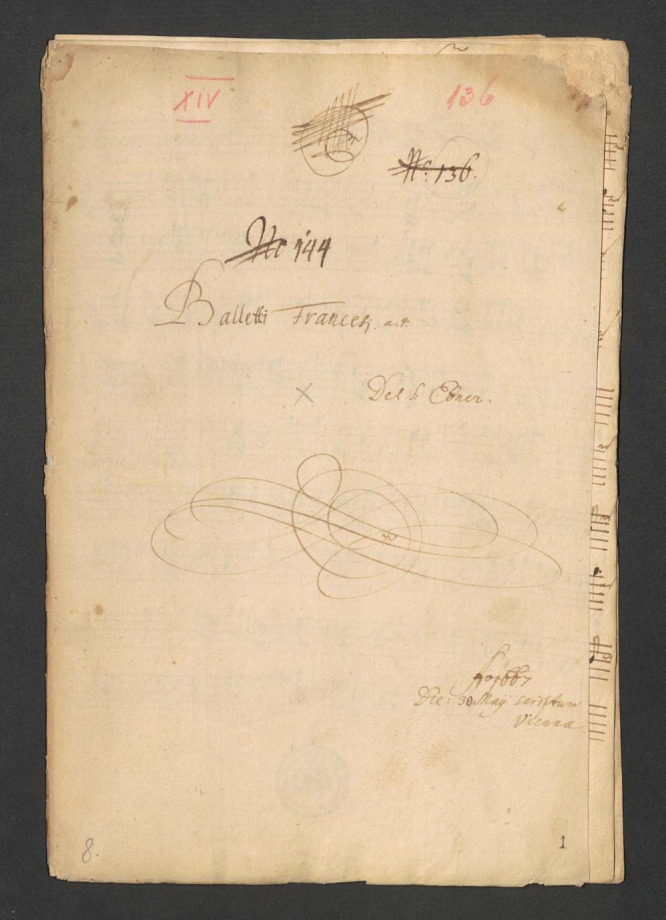 XIV
136
No: 136.
No 144
Balletti Francesi. a.4.
Del S: Ebner.
Ao 1667
Die: 30 Maÿ scriptum
Viennæ
8.
1